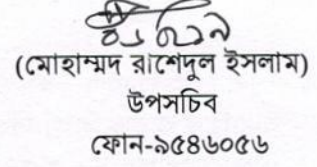 (মোহাম্মদ রাশেদুল ইসলাম)
উপসচিব
ফোন-৯৫৪৬০৫৬